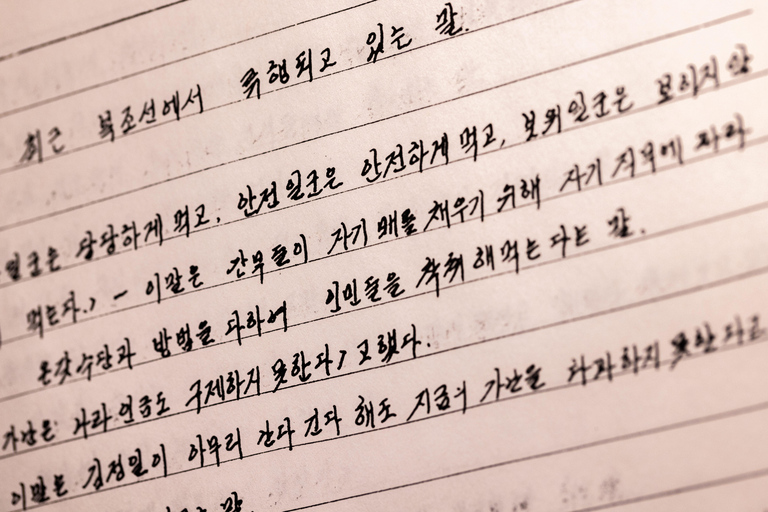 최근 북조선에서 류행되고 있는 말.
일군은 당당하게 먹고, 안전일군은 안전하게 먹고, 보위일군은 보이지 않
먹는다.》 - 이말은 간부들이 자기 배를 채우기 위해 자기 직무에 따라
온갖 수단과 방법을 다하여 인민들을 착취해먹는다는 말.
가난은 나라 임금도 구제하지 못한다》고 했다.
이말은 김정일이 아무리 간다 긴다 해도 지금의 가난을 타파하지 못한다고
말.